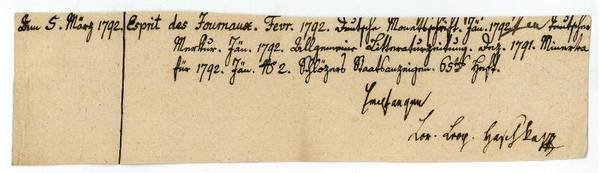 Dem 5. März 1792. Esprit des Journaux. Fevr. 1792. Deutsche Monattschrift. Jän. 1792 Teutscher
Merkur. Jän. 1792. Allgemeine Litteraturzeitung. Dez. 1791. Minerva
für 1792. Jän. No 2. Schlözers Staatsanzeigen. 65tes Heft.
Empfangen
Lor. Leop. Haschka